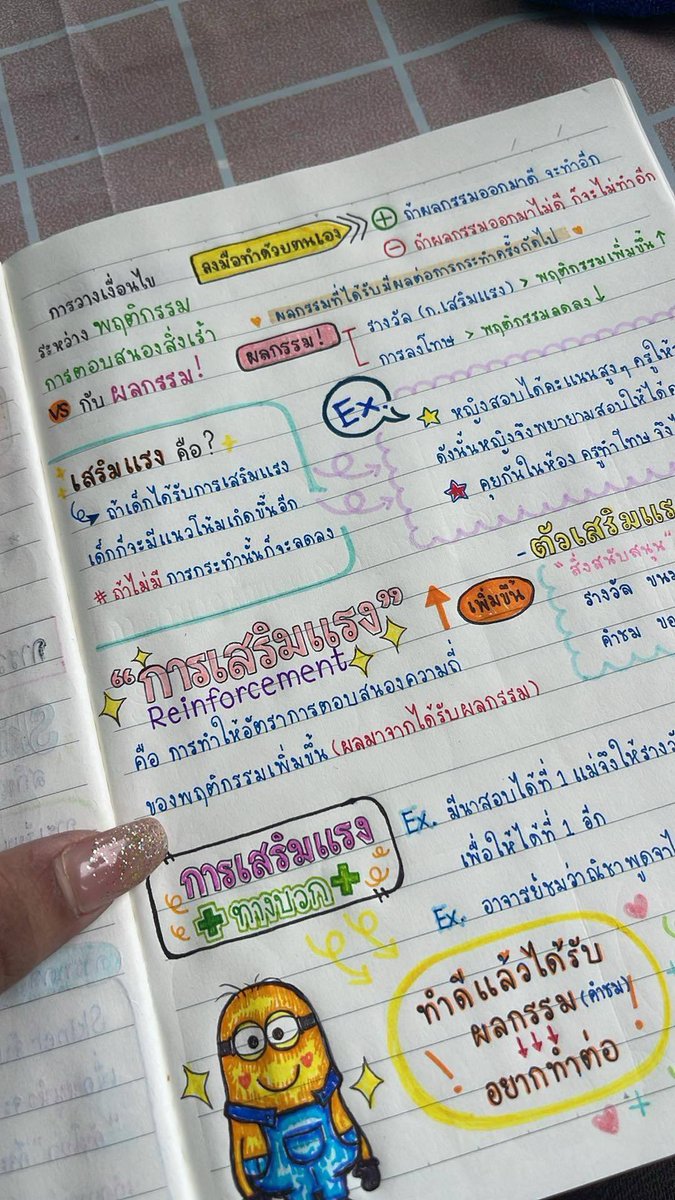 ลงมือทำด้วยตนเอง
+ ถ้าผลกรรมออกมาดี จะทำอีก
- ถ้าผลกรรมออกมาไม่ดี ก็จะไม่ทำอีก
การวางเงื่อนไข
ระหว่าง พฤติกรรม
การตอบสนองสิ่งเร้า
VS กับ ผลกรรม!
ผลกรรมที่ได้รับมีผลต่อการกระทำครั้งถัดไป
ผลกรรม!
รางวัล (ก.เสริมแรง) > พฤติกรรมเพิ่มขึ้น ↑
การลงโทษ > พฤติกรรมลดลง ↓
Ex.
หญิงสอบได้คะแนนสูงๆ ครูให้
ดังนั้นหญิงจึงพยายามสอบให้ได้
คุยกันในห้อง ครูทำโทษ จึง
เสริมแรง คือ?
ถ้าเด็กได้รับการเสริมแรง
เด็กก็จะมีแนวโน้มเกิดขึ้นอีก
# ถ้าไม่มี การกระทำนั้นก็จะลดลง
- ตัวเสริมแร
"สิ่งสนับสนุน"
รางวัล ขนม
คำชม ขอ
"การเสริมแรง"
Reinforcement
↑ เพิ่มขึ้น
คือ การทำให้อัตราการตอบสนองความถี่
ของพฤติกรรมเพิ่มขึ้น (ผลมาจากได้รับผลกรรม)
การเสริมแรง
+ ทางบวก +
Ex. มีนาสอบได้ที่ 1 แม่จึงให้รางวั
เพื่อให้ได้ที่ 1 อีก
Ex. อาจารย์ชมว่าณิชาพูดจา
ทำดีแล้วได้รับ
ผลกรรม (คำชม)
↓↓↓
อยากทำต่อ